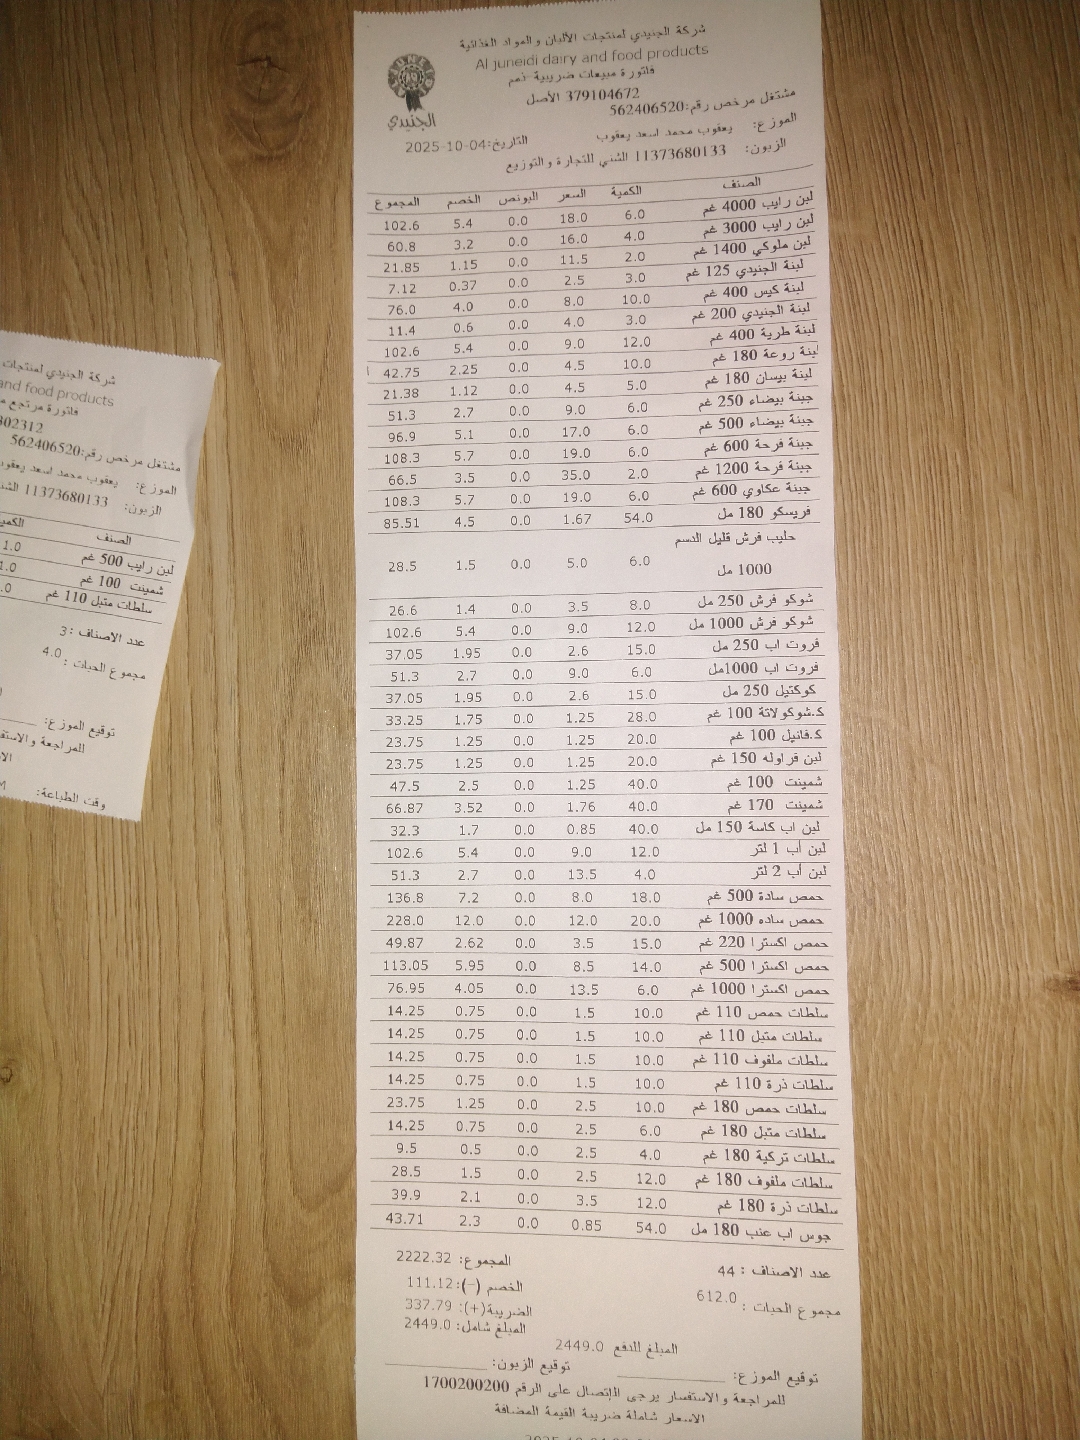 شركة الجنيدي لمنتجات الألبان و المواد الغذائية
Al juneidi dairy and food products
فاتورة مبيعات ضريبية-نعم
379104672 الأصل
مشتغل مرخص رقم:562406520
الجنيدي
الموزع: يعقوب محمد اسعد يعقوب
التاريخ:2025-10-04
الزبون: 11373680133 الشني للتجارة و التوزيع
الصنف الكمية السعر البونص الخصم المجموع
لبن رايب 4000 غم 6.0 18.0 0.0 5.4 102.6
لبن رايب 3000 غم 4.0 16.0 0.0 3.2 60.8
لبن ملوكي 1400 غم 2.0 11.5 0.0 1.15 21.85
لبنة الجنيدي 125 غم 3.0 2.5 0.0 0.37 7.12
لبنة كيس 400 غم 10.0 8.0 0.0 4.0 76.0
لبنة الجنيدي 200 غم 3.0 4.0 0.0 0.6 11.4
لبنة طرية 400 غم 12.0 9.0 0.0 5.4 102.6
لبنة روعة 180 غم 10.0 4.5 0.0 2.25 42.75
لبنة بيسان 180 غم 5.0 4.5 0.0 1.12 21.38
جبنة بيضاء 250 غم 6.0 9.0 0.0 2.7 51.3
جبنة بيضاء 500 غم 6.0 17.0 0.0 5.1 96.9
جبنة فرحة 600 غم 6.0 19.0 0.0 5.7 108.3
جبنة فرحة 1200 غم 2.0 35.0 0.0 3.5 66.5
جبنة عكاوي 600 غم 6.0 19.0 0.0 5.7 108.3
فريسكو 180 مل 54.0 1.67 0.0 4.5 85.51
حليب فرش قليل الدسم
1000 مل 6.0 5.0 0.0 1.5 28.5
شوكو فرش 250 مل 8.0 3.5 0.0 1.4 26.6
شوكو فرش 1000 مل 12.0 9.0 0.0 5.4 102.6
فروت اب 250 مل 15.0 2.6 0.0 1.95 37.05
فروت اب 1000مل 6.0 9.0 0.0 2.7 51.3
كوكتيل 250 مل 15.0 2.6 0.0 1.95 37.05
ك.شوكولاتة 100 غم 28.0 1.25 0.0 1.75 33.25
ك.فانيل 100 غم 20.0 1.25 0.0 1.25 23.75
لبن فراوله 150 غم 20.0 1.25 0.0 1.25 23.75
شمينت 100 غم 40.0 1.25 0.0 2.5 47.5
شمينت 170 غم 40.0 1.76 0.0 3.52 66.87
لبن اب كاسة 150 مل 40.0 0.85 0.0 1.7 32.3
لبن أب 1 لتر 12.0 9.0 0.0 5.4 102.6
لبن أب 2 لتر 4.0 13.5 0.0 2.7 51.3
حمص سادة 500 غم 18.0 8.0 0.0 7.2 136.8
حمص ساده 1000 غم 20.0 12.0 0.0 12.0 228.0
حمص اكسترا 220 غم 15.0 3.5 0.0 2.62 49.87
حمص اكسترا 500 غم 14.0 8.5 0.0 5.95 113.05
حمص اكسترا 1000 غم 6.0 13.5 0.0 4.05 76.95
سلطات حمص 110 غم 10.0 1.5 0.0 0.75 14.25
سلطات متبل 110 غم 10.0 1.5 0.0 0.75 14.25
سلطات ملفوف 110 غم 10.0 1.5 0.0 0.75 14.25
سلطات ذرة 110 غم 10.0 1.5 0.0 0.75 14.25
سلطات حمص 180 غم 10.0 2.5 0.0 1.25 23.75
سلطات متبل 180 غم 6.0 2.5 0.0 0.75 14.25
سلطات تركية 180 غم 4.0 2.5 0.0 0.5 9.5
سلطات ملفوف 180 غم 12.0 2.5 0.0 1.5 28.5
سلطات ذرة 180 غم 12.0 3.5 0.0 2.1 39.9
جوس اب عنب 180 مل 54.0 0.85 0.0 2.3 43.71
عدد الاصناف : 44 المجموع: 2222.32
مجموع الحبات : 612.0 الخصم (-):111.12
الضريبة(+): 337.79
المبلغ شامل: 2449.0
المبلغ للدفع 2449.0
توقيع الموزع: توقيع الزبون:
للمراجعة والاستفسار يرجى الاتصال على الرقم 1700200200
الاسعار شاملة ضريبة القيمة المضافة
شركة الجنيدي لمنتجات
and food products
فاتورة مرتجع
302312
مشتغل مرخص رقم:562406520
الموزع: يعقوب محمد اسعد يعقوب
الزبون: 11373680133
الصنف
لبن رايب 500 غم 1.0
شمينت 100 غم 1.0
سلطات متبل 110 غم
عدد الاصناف :3
مجموع الحبات :4.0
توقيع الموزع:
للمراجعة و
وقت الطباعة: